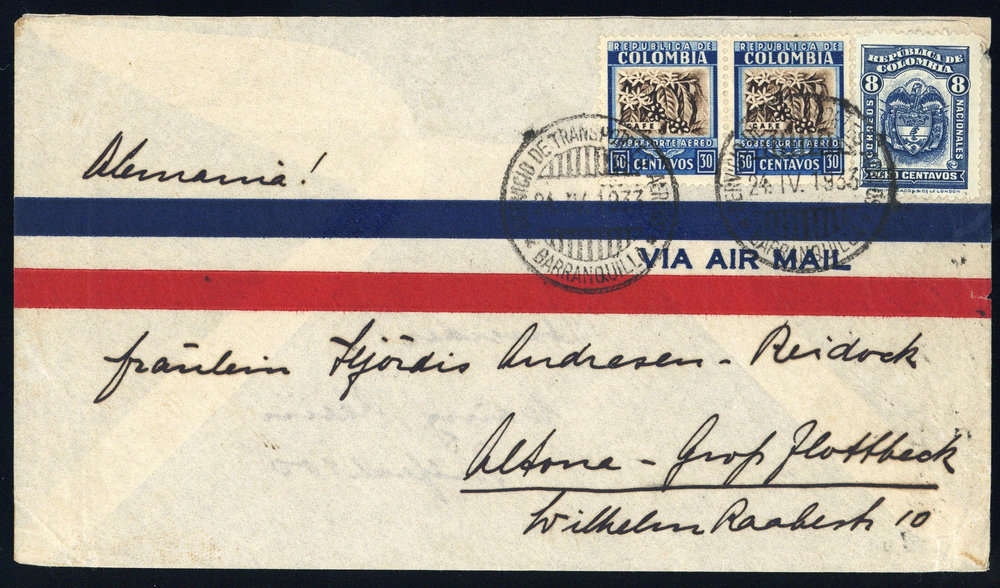 REPUBLICA DE
COLOMBIA
CAFE
SOBREPORTE AEREO
30 CENTAVOS 30
REPUBLICA DE
COLOMBIA
CAFE
SOBREPORTE AEREO
30 CENTAVOS 30
REPÚBLICA DE
COLOMBIA
8 8
CORREOS NACIONALES
OCHO CENTAVOS
DE TRANSPORTE
24. IV. 1933
BARRANQUILLA
24. IV. 1933
BARRANQUILLA
Alemania!
VIA AIR MAIL
fräulein Hjördis Andresen - Reidock
Altona - Groß Flottbeck
Wilhelm Raabestr 10